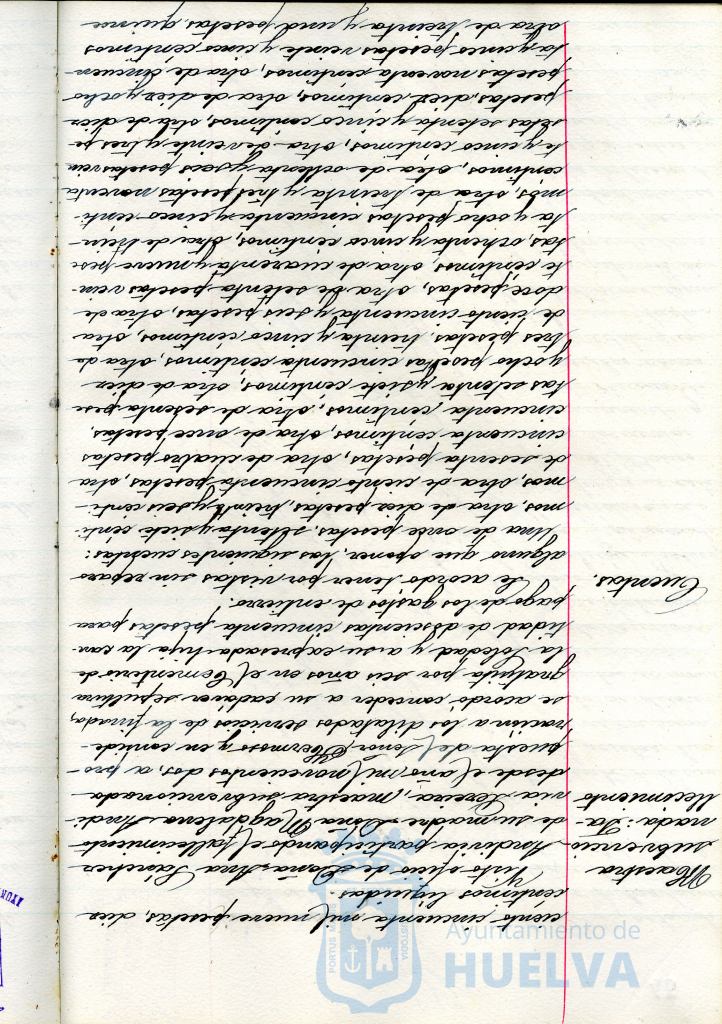 ciento cincuenta mil nueve pesetas, diez
céntimos líquidos.
Maestra
subvencio-
nada: Fa-
llecimiento
Visto oficio de Doña Ana Sánchez
Andivia participando el fallecimiento
de su madre Doña Magdalena Andi-
via Pereira, maestra subvencionada
desde el año mil novecientos dos, a pro-
puesta del Señor Hermoso y en conside-
ración a los dilatados servicios de la finada,
se acordó conceder a su cadáver sepultura
gratuita por seis años en el Cementerio de
la Soledad y a su expresada hija la can-
tidad de doscientas cincuenta pesetas para
pago de los gastos de entierro.
Cuentas.
Se acordó tener por vistas sin reparo
alguno que oponer, las siguientes cuentas:
Una de once pesetas, setenta y siete cénti-
mos, otra de diez pesetas, treinta y seis cénti-
mos, otra de ciento cincuenta pesetas, otra
de sesenta pesetas, otra de cuatro pesetas
cincuenta céntimos, otra de once pesetas,
cincuenta céntimos, otra de sesenta pese-
tas setenta y siete céntimos, otra de diez
y ocho pesetas cincuenta céntimos, otra de
tres pesetas, treinta y cinco céntimos, otra
de ciento cincuenta y seis pesetas, otra de
doce pesetas, otra de setenta pesetas vein-
te céntimos, otra de cuarenta y nueve pese-
tas, ochenta y cinco céntimos, otra de trein-
ta y ocho pesetas cincuenta y cinco cénti-
mos, otra de treinta y tres pesetas noventa
céntimos, otra de ochenta y seis pesetas vein-
te y cinco céntimos, otra de veinte y tres pe-
setas setenta y cinco céntimos, otra de diez
pesetas, diez céntimos, otra de diez y ocho
pesetas noventa céntimos, otra de cincuen-
ta y cinco pesetas veinte y cinco céntimos
otra de treinta y una pesetas quince
Ayuntamiento de
HUELVA